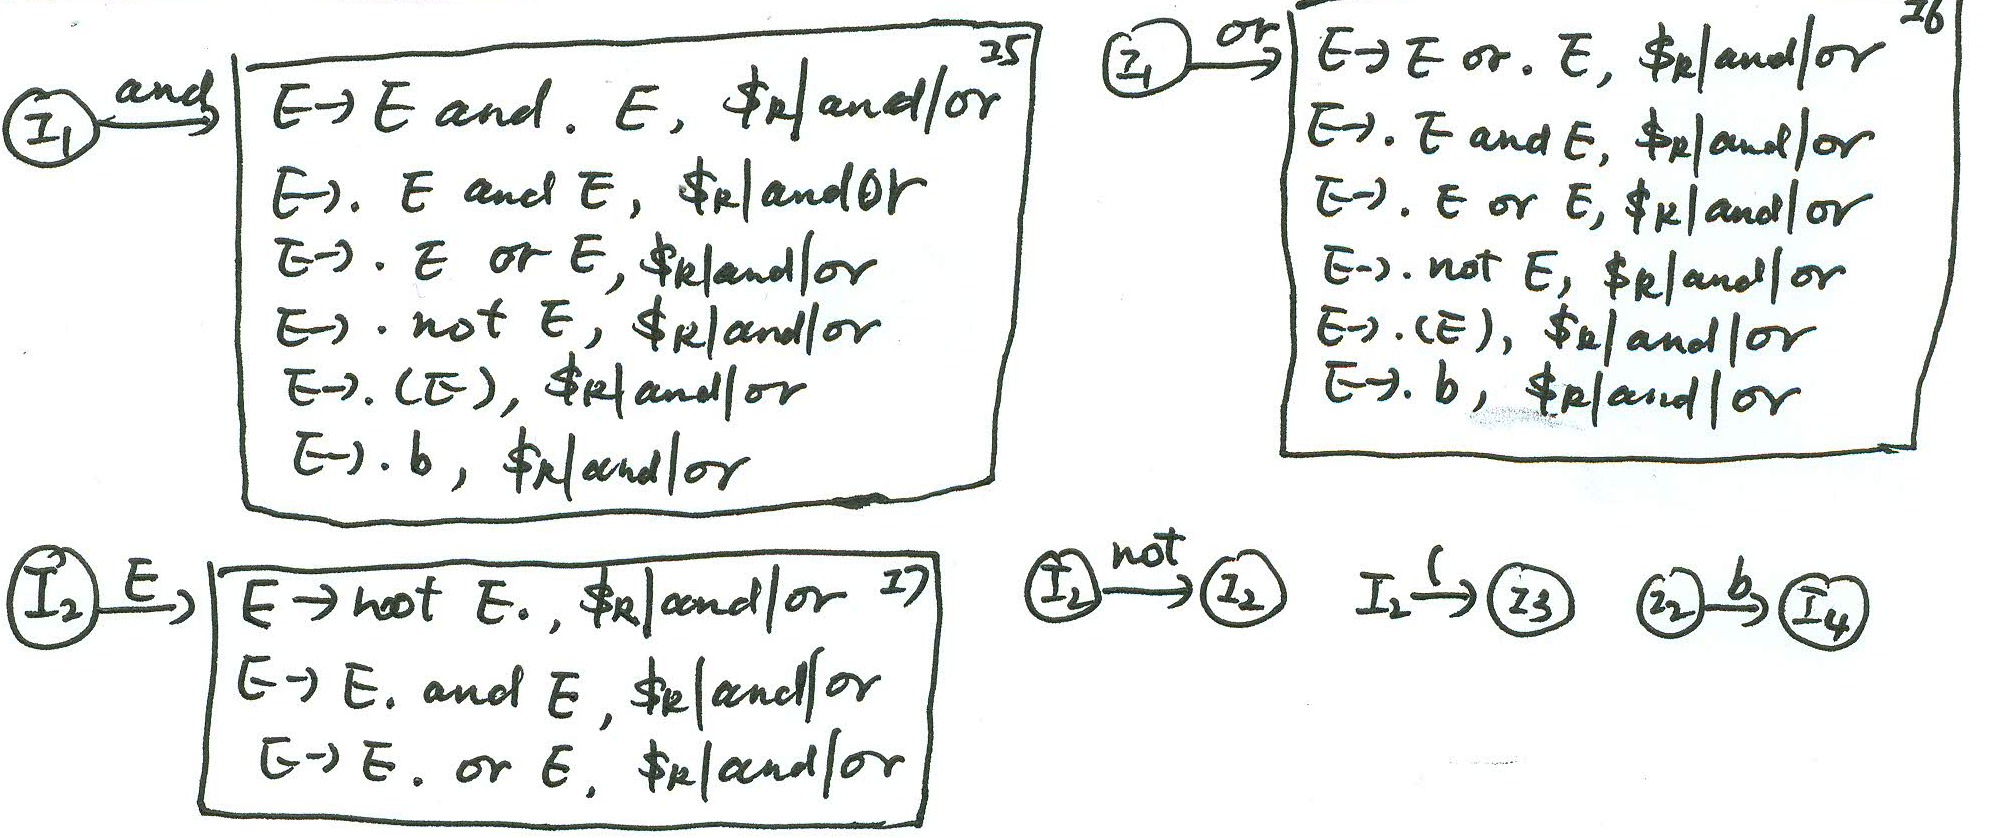 I1 and I5
E→E and. E, $R|and|or
E→. E and E, $R|andor
E→. E or E, $R|and|or
E→. not E, $R|and|or
E→.(E), $R|and|or
E→. b, $R|and|or
I1 or I6
E→E or. E, $R|and|or
E→. E and E, $R|and|or
E→. E or E, $R|and|or
E→. not E, $R|and|or
E→.(E), $R|and|or
E→. b, $R|and|or
I2 E I7
E→not E., $R|and|or
E→E. and E, $R|and|or
E→E. or E, $R|and|or
I2 not→ I2 I2 (→ I3 I2 b→ I4